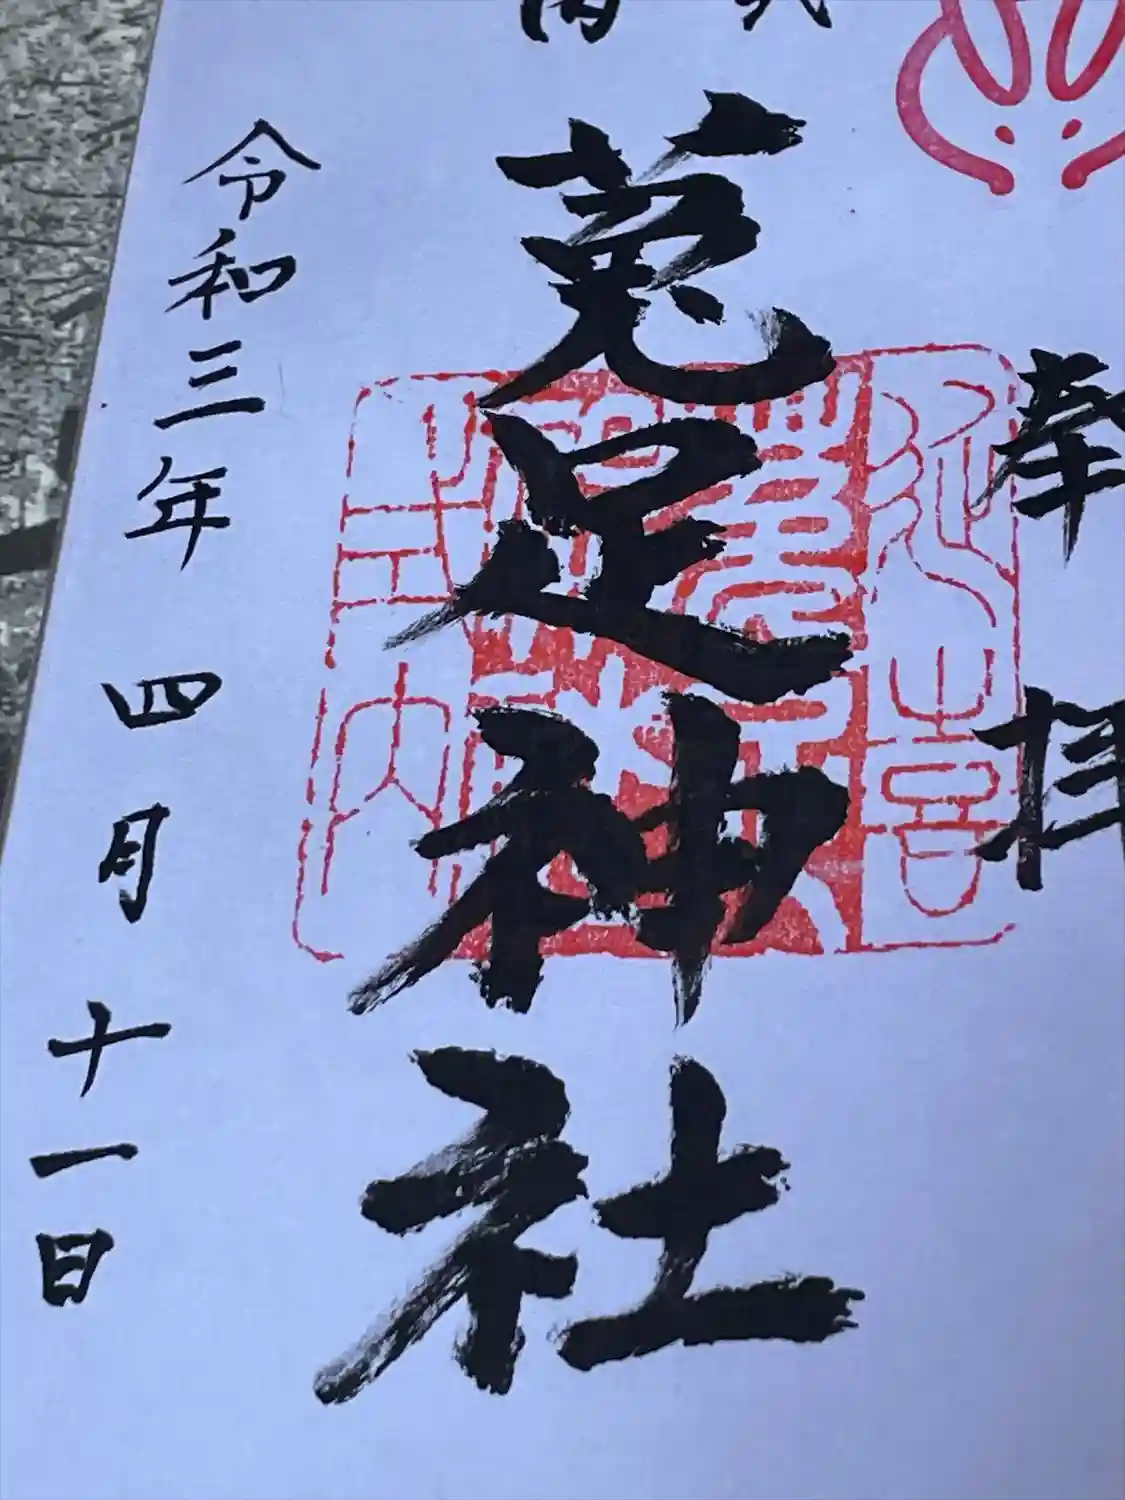 奉拝
式内
菟足神社
令和三年 四月 十一日